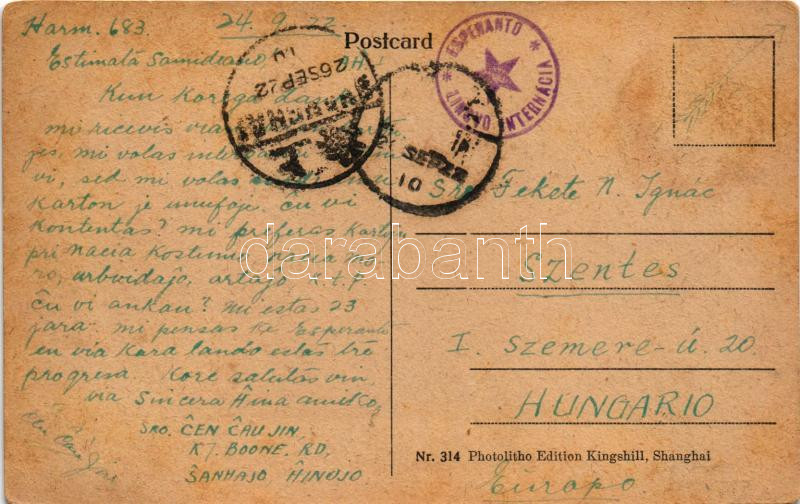 Harm. 683. 24.9.22.
Postcard
Estimata Samideano,
ESPERANTO
LIGNO INTERNACIA
26 SEP 22
SEP 22
10
Kun Koraga
mi ricevis
jes, mi volas
vi, sed mi volas
Karton je unufoje. Ĉu vi
Kontentas? mi preferas Karton
pri nacia Kostumo, nacia
urbvidaĵo, artaĵo K.t.p
Ĉu vi ankaŭ? Mi estas 23
jara. mi pensas ke Esperanto
en via Kara lando estas tre
progresa. Kore salutas vin,
via Sincera Ĥina amiko,
SRO. ĈEN ĈAU JIN,
K7. BOONE. RD,
ŜANHAJO ĤINUJO
Sro. Fekete N. Ignác
Szentes
I. Szemere-ú. 20.
HUNGARIO
Nr. 314 Photolitho Edition Kingshill, Shanghai
Europo
darabanth.com